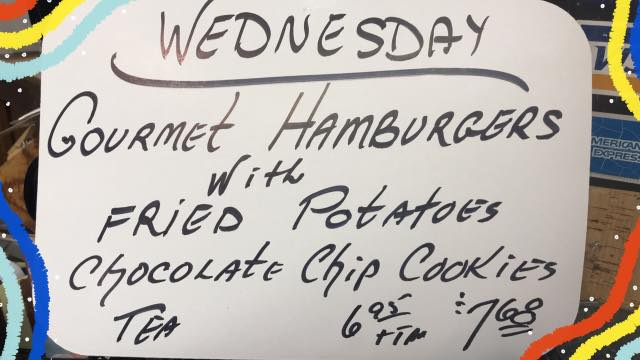 WEDNESDAY
GOURMET HAMBURGERS
with
FRIED POTATOES
CHOCOLATE Chip COOKIES
TEA 6 95 + TAX : 7 68
AMERICAN
EXPRESS